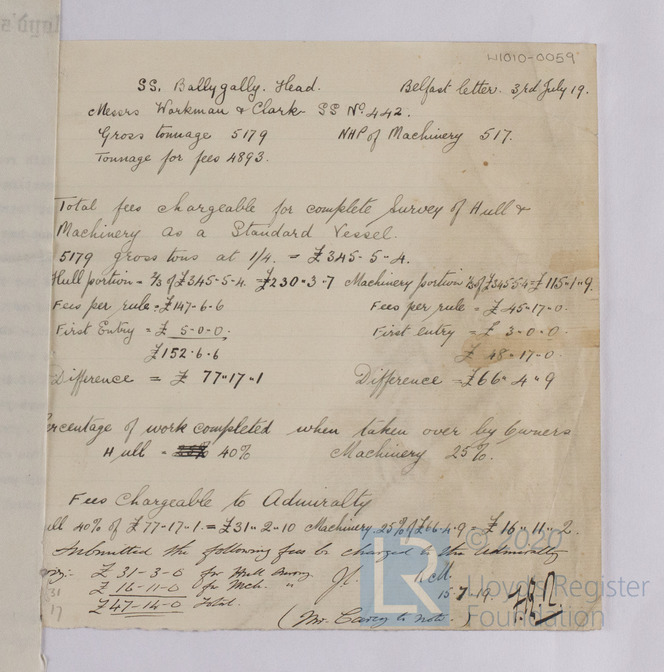 W1010-0059
SS. Ballygally. Head. Belfast letter. 3rd July 19.
Messrs Workman & Clark SS No. 442.
Gross tonnage 5179 NHP of Machinery 517.
Tonnage for fees 4893.
Total fees chargeable for complete Survey of Hull &
Machinery as a Standard Vessel.
5179 gross tons at 1/4. = £345-5-4.
Hull portion = 2/3 of £345-5-4 = £230-3-7 Machinery portion 1/3 of £345-5-4 = £115-1-9.
Fees per rule = £147-6-6 Fees per rule = £45-17-0.
First Entry = £ 5-0-0. First entry = £ 3-0-0.
£152-6-6 £ 48-17-0.
Difference = £ 77-17-1 Difference = £66-4-9
ercentage of work completed when taken over by Owners
Hull = 40% Machinery 25%.
Fees Chargeable to Admiralty
ull 40% of £77-17-1. = £31-2-10 Machinery 25% of £66-4-9 = £16-11-2.
Submitted the following fees be charged to the Admiralty
£ 31-3-0 for Hull
31 £ 16-11-0 for Mch. "
17 £47-14-0 Total.
15-7-19
(Mr. Carey to note.)
© 2020
LR
Lloyd's Register
Foundation